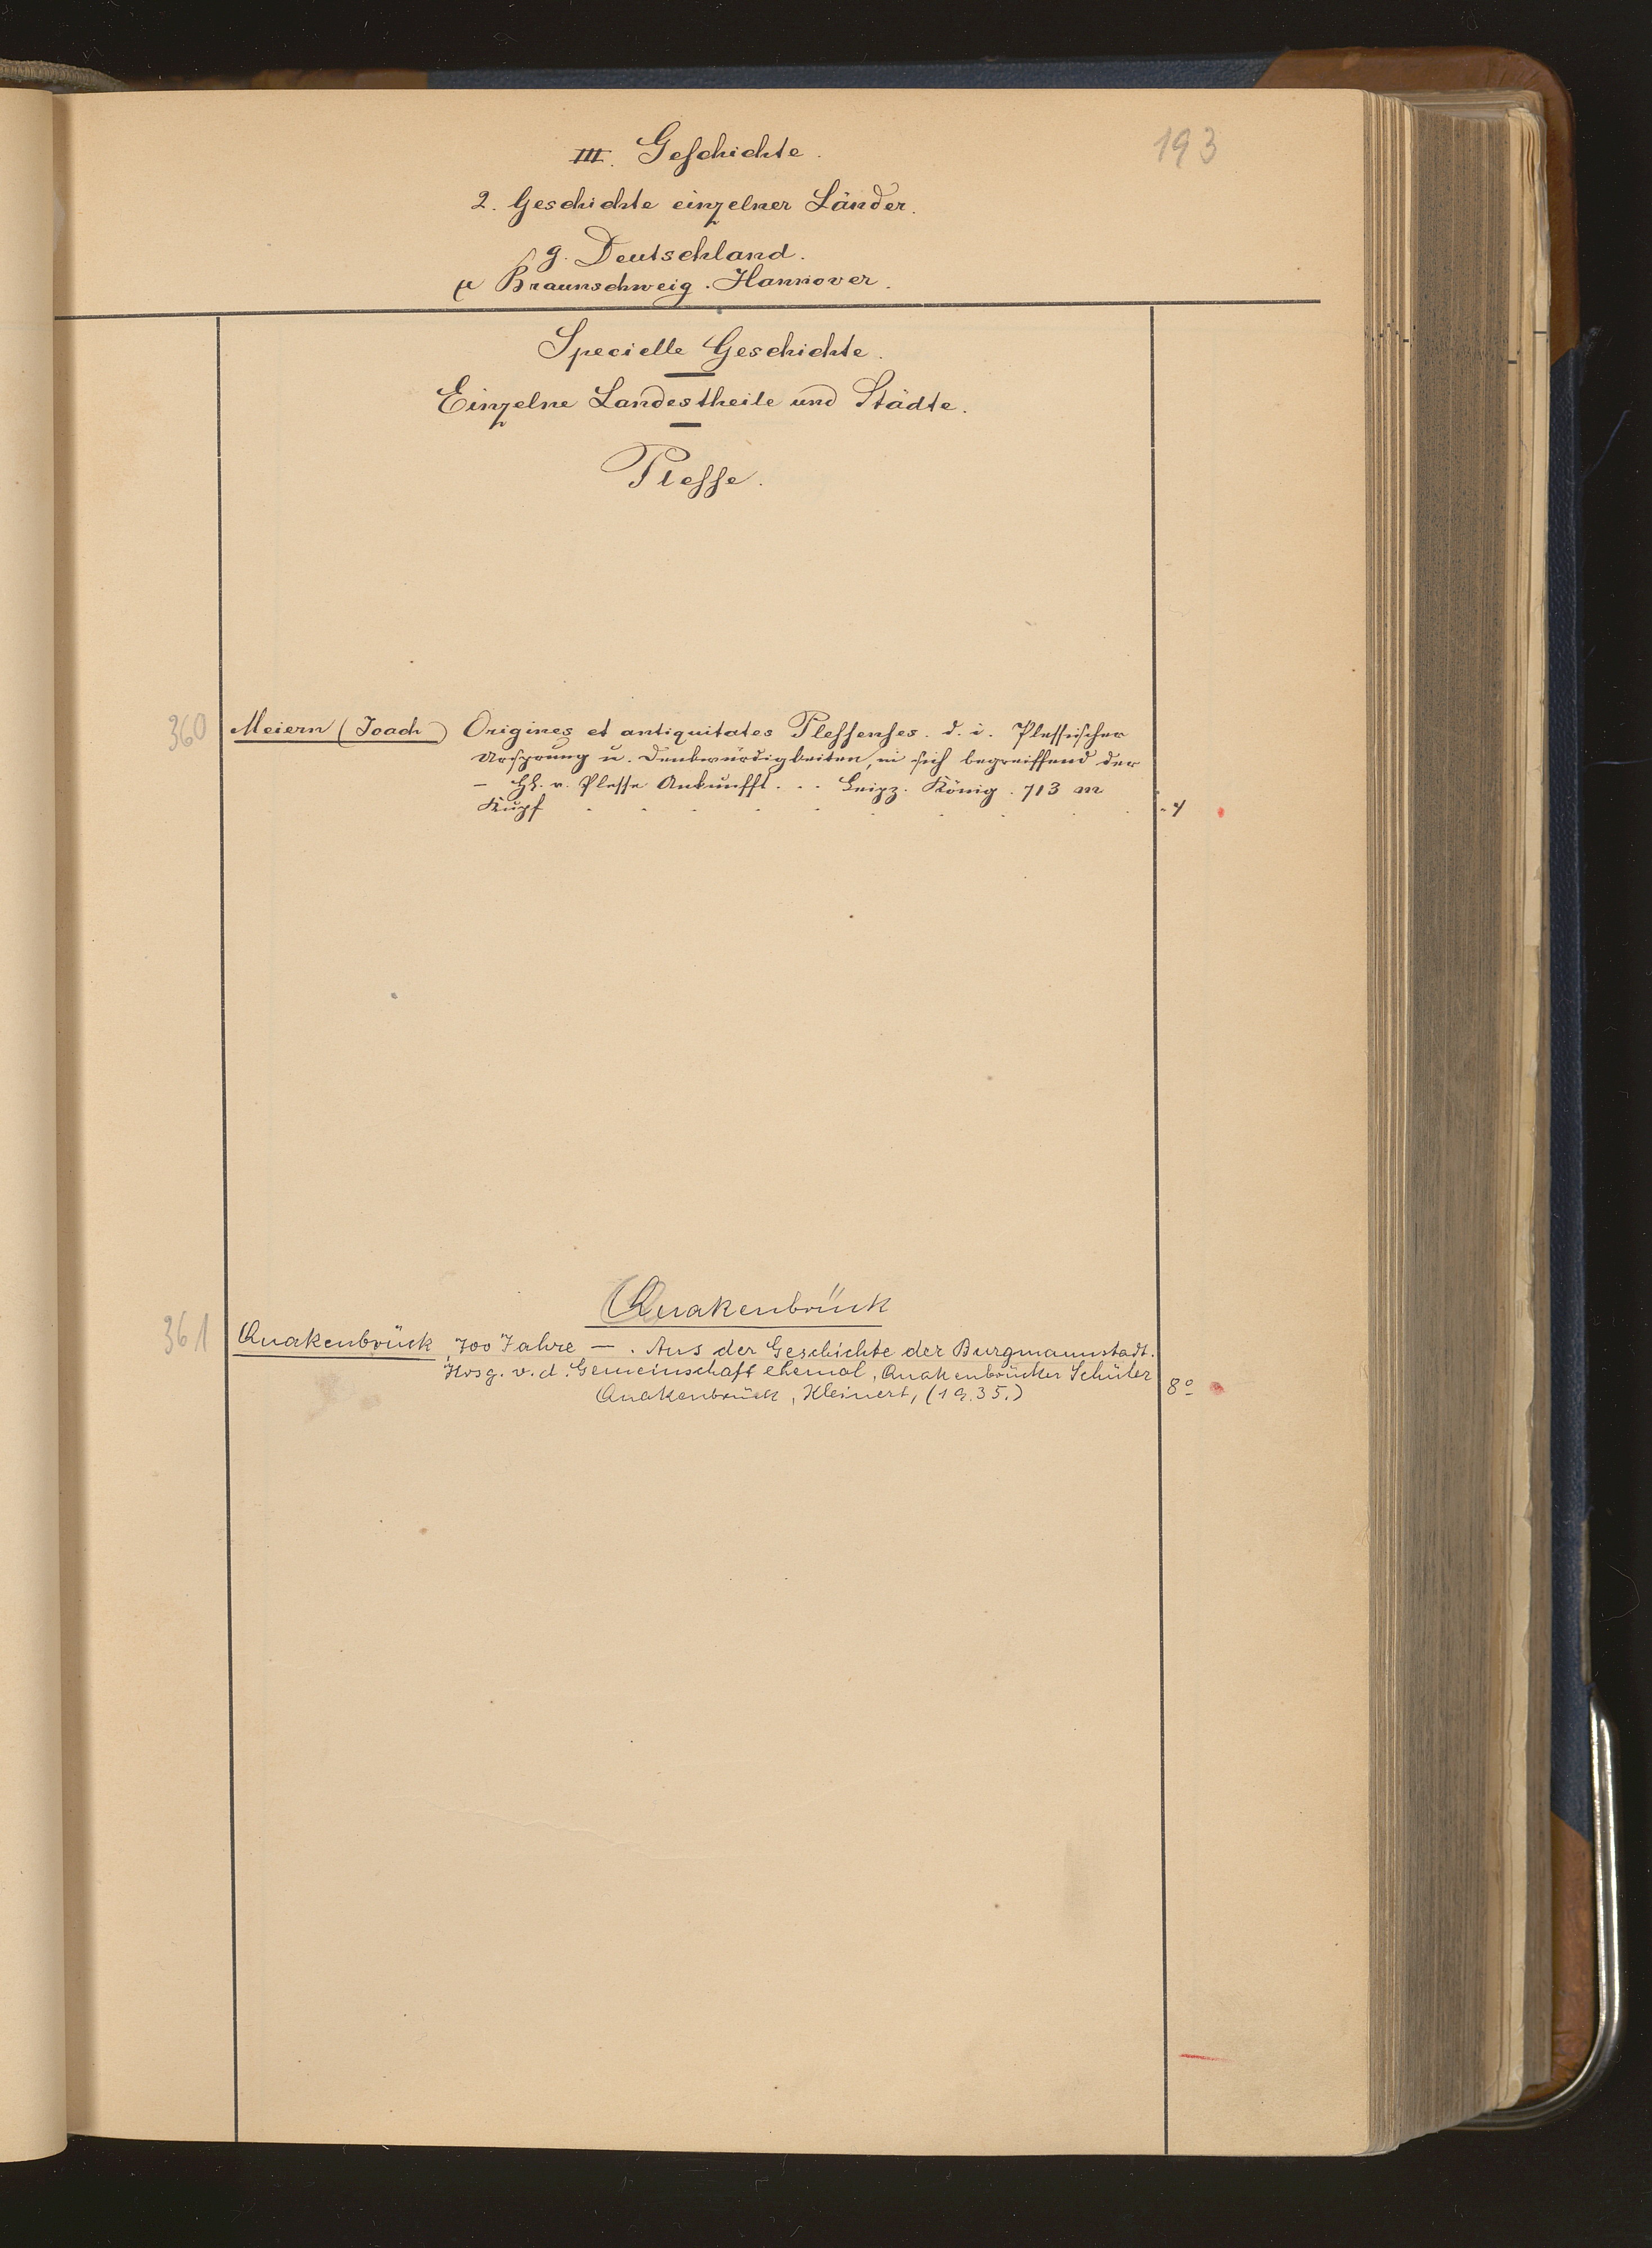 193
III. Geschichte.
2. Geschichte einzelner Länder.
g. Deutschland.
μ Braunschweig. Hannover.
Specielle Geschichte.
Einzelne Landestheile und Städte.
Plesse.
360 Meiern (Joach) Origines et antiquitates Plessenses. d. i. Plessischer
Ursprung u. Denkwürdigkeiten, in sich begreiffend der
– HH. v. Plesse Ankunfft . . . Leipz. König. 713 m
Kupf . . . . . . . . . . 4
Quakenbrück
361 Quakenbrück, 700 Jahre – . Aus der Geschichte der Burgmannstadt.
Hrsg. v. d. Gemeinschaft ehemal. Quakenbrücker Schüler
Quakenbrück, Kleinert, (19.35.) 8º